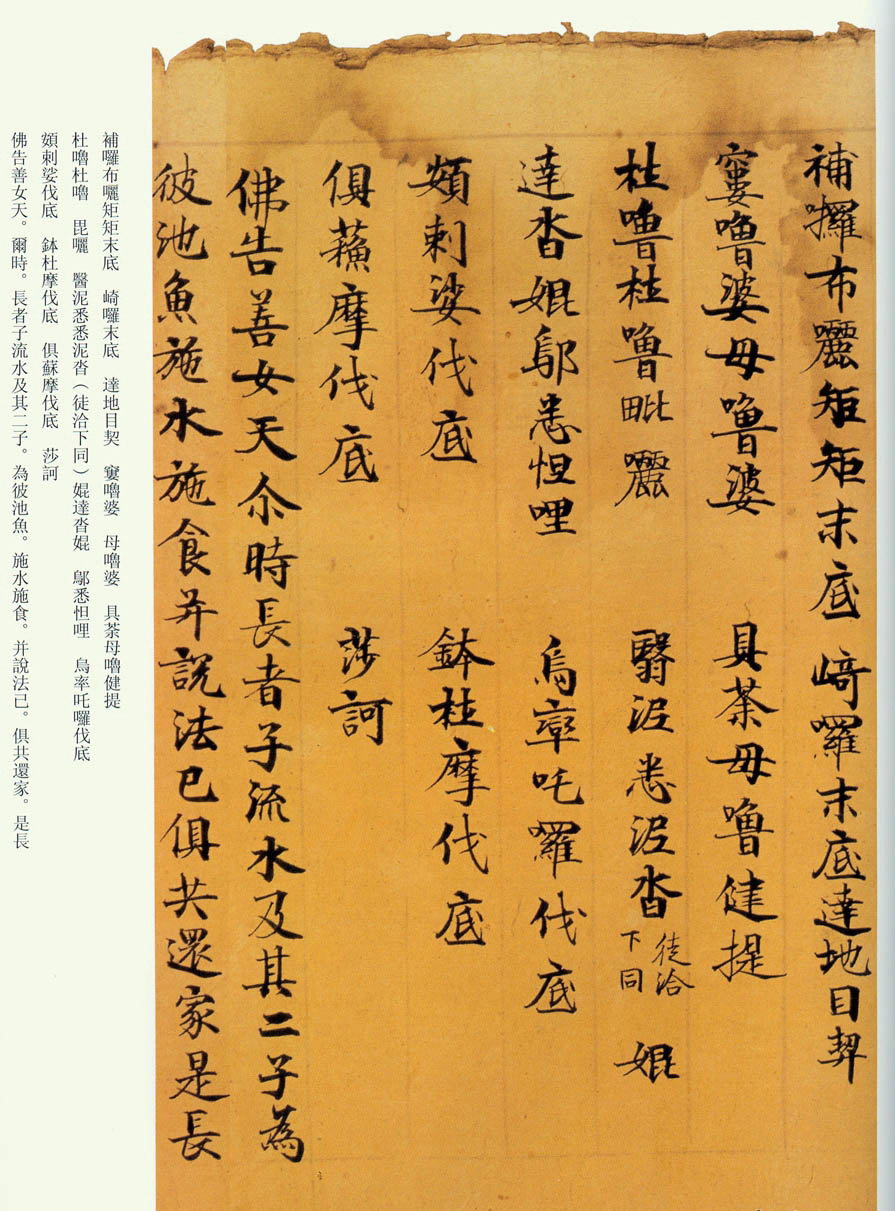 補囉布囇矩矩末底 崎囉末底達地目契
窶嚕婆母嚕婆 具荼母嚕健提
杜嚕杜嚕毗囇 醫泥悉悉泥沓徒洽下同 婫
達沓婫鄔悉怛哩 烏率吒囉伐底
頞剌娑伐底 鉢杜摩伐底
俱蘓摩伐底 莎訶
佛告善女天尒時長者子流水及其二子為
彼池魚施水施食并說法已俱共還家是長
補囉布囇矩矩末底 崎囉末底 達地目契 窶嚕婆 母嚕婆 具荼母嚕健提
杜嚕杜嚕 毘囇 醫泥悉悉泥沓(徒洽下同)婫達沓婫 鄔悉怛哩 烏率吒囉伐底
頞剌娑伐底 鉢杜摩伐底 俱蘇摩伐底 莎訶
佛告善女天。爾時。長者子流水及其二子。為彼池魚。施水施食。并說法已。俱共還家。是長